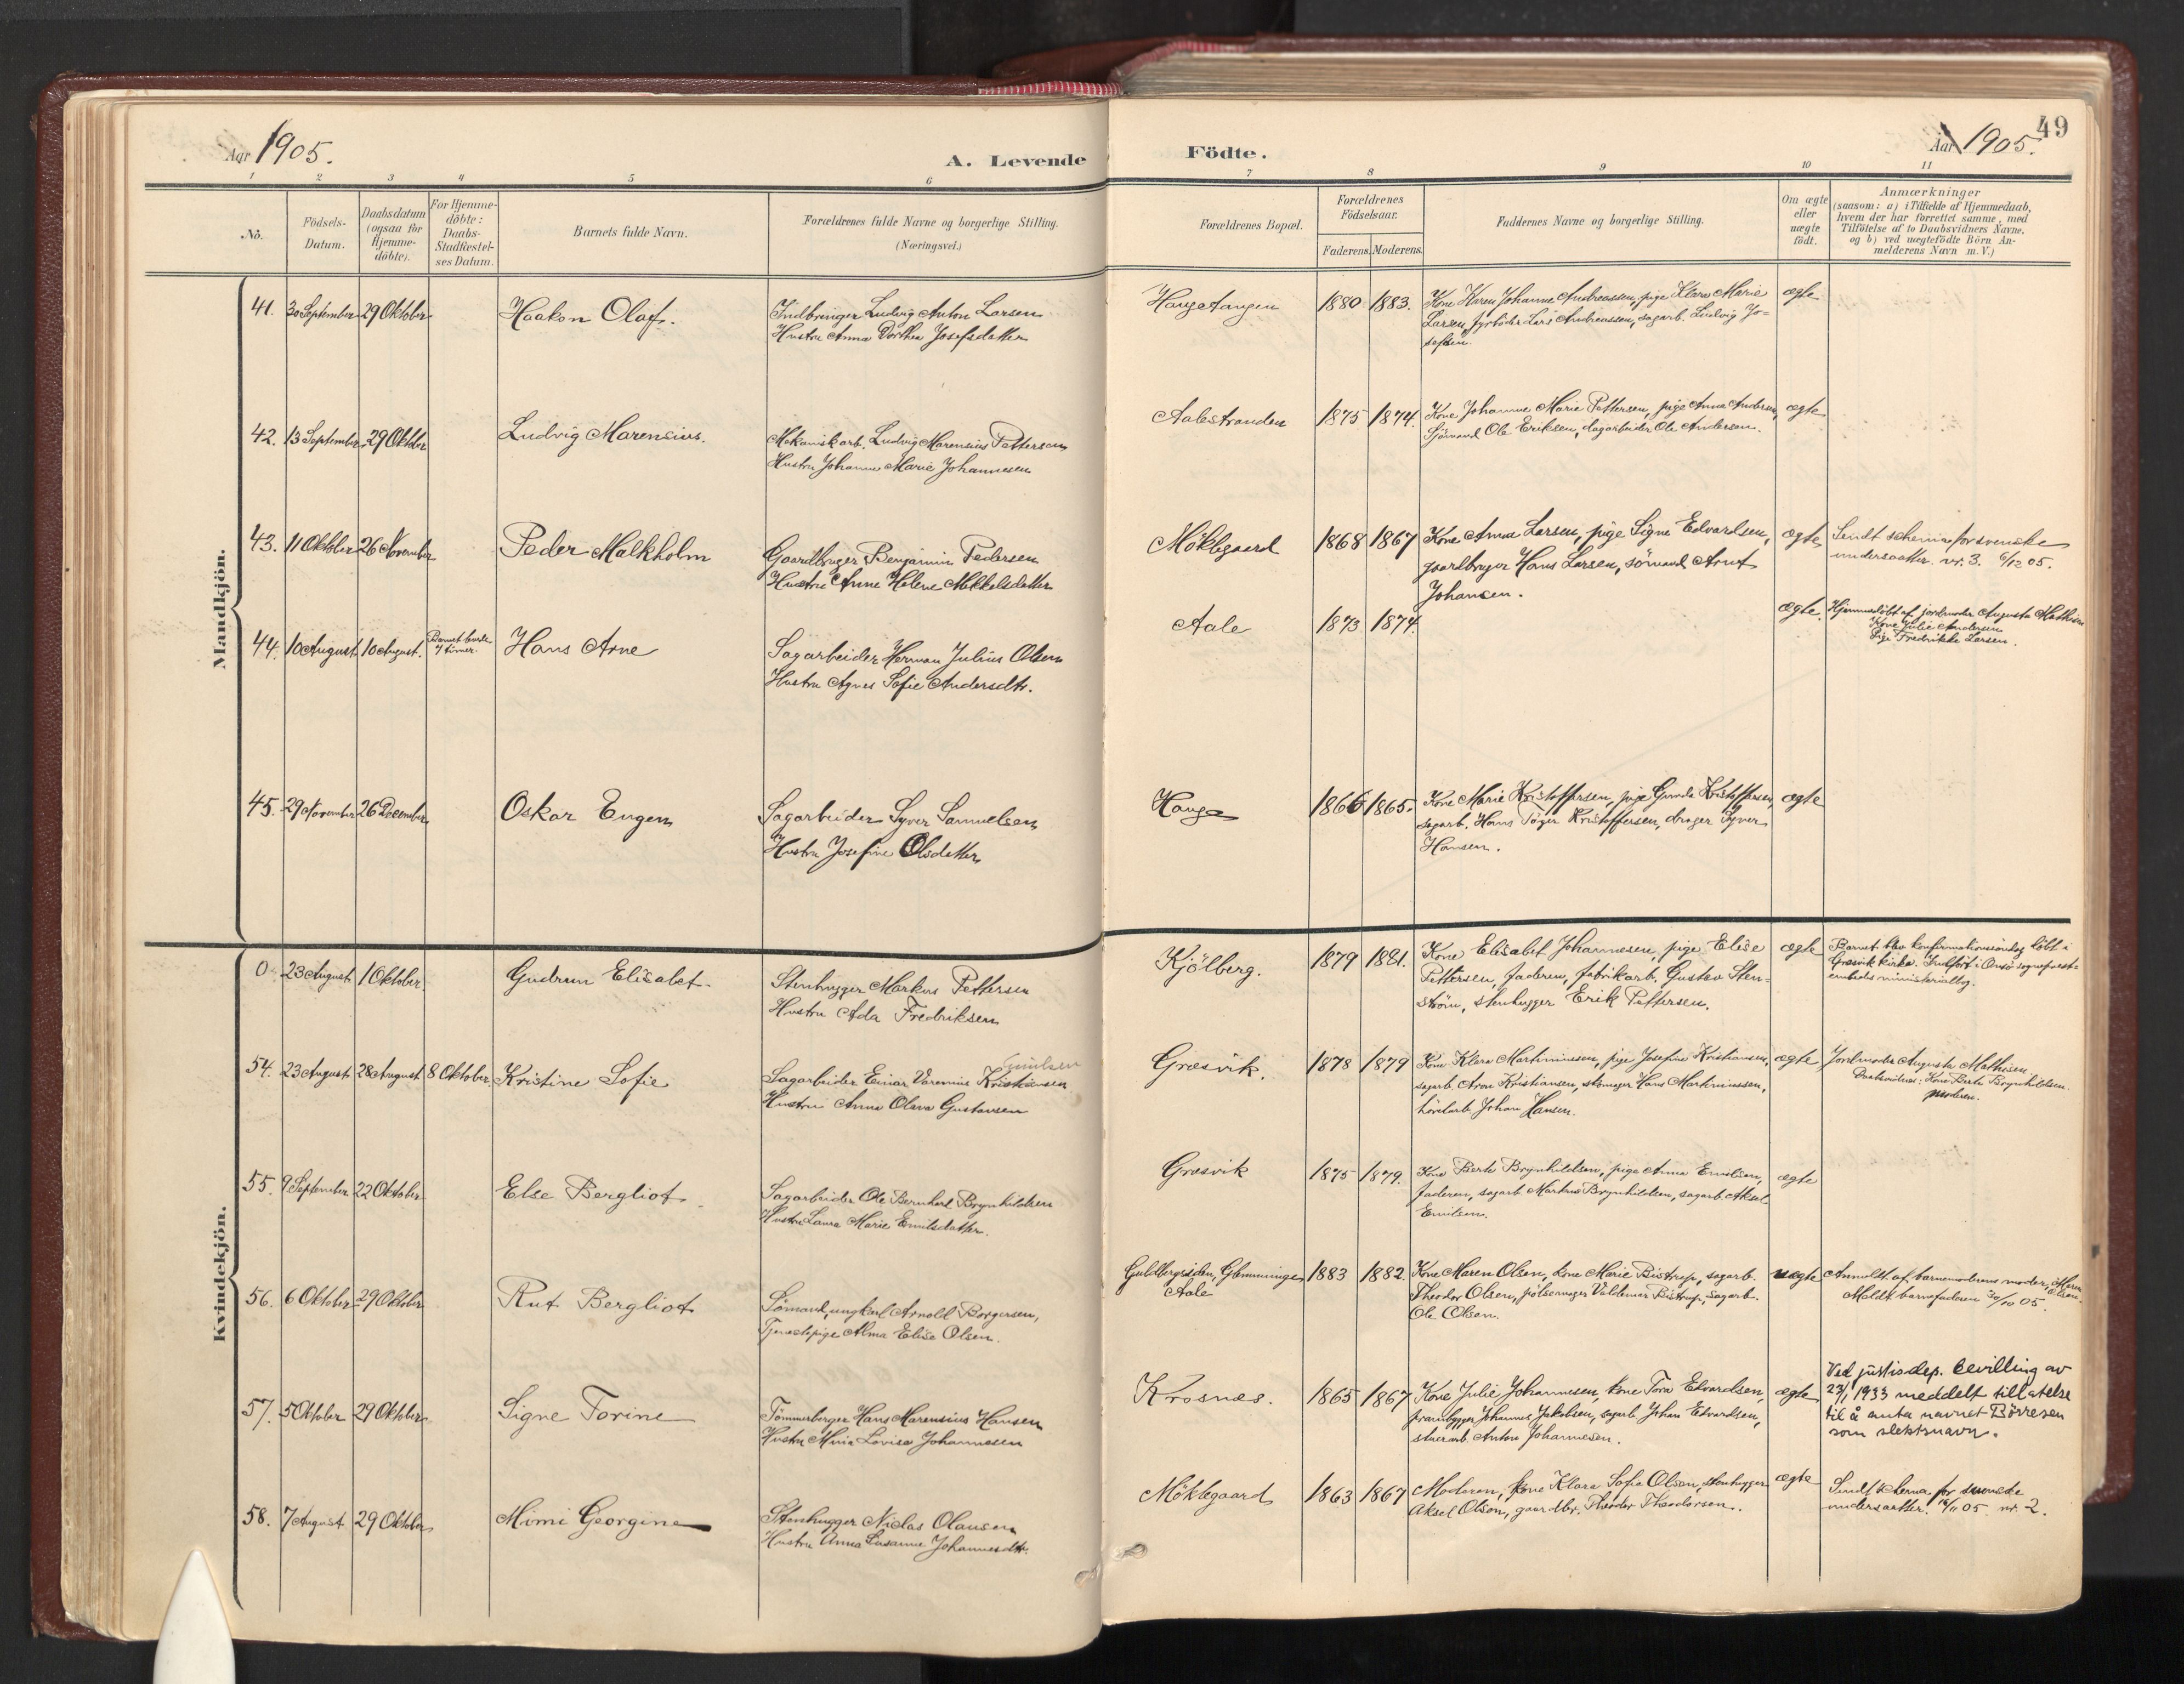 Aar 1905.
A. Levende
Födte.
Aar 1905.
49
1 2 3 4 5 6 7 8 9 10 11
No.
Födsels-
Datum.
Daabsdatum
(ogsaa for
Hjemme-
döbte).
For Hjemme-
döbte:
Daabs-
Stadfæstel-
ses Datum.
Barnets fulde Navn.
Forældrenes fulde Navne og borgerlige Stilling.
(Næringsvei.)
Forældrenes Bopæl.
Forældrenes
Födselsaar.
Faderens. Moderens.
Faddernes Navne og borgerlige Stilling.
Om ægte
eller
uægte
födt.
Anmærkninger
(saasom: a) i Tilfælde af Hjemmedaab,
hvem der har forrettet samme, med
Tilföielse af to Daabsvidners Navne.
og b) ved uægtefödte Börn An-
melderens Navn m. V.)
Mandkjön.
41. 30 September 29 Oktober Haakon Olaf.
Indbringer Ludvig Anton Larsen
Hustru Anna Dorthea Josefsdatter
Haugetangen 1880 1883.
Kone Karen Johanne Andreassen, pige Klara Marie
Larsen, fyrböder Lars Andreassen, sagarb. Ludvig Jo-
sefsen.
ægte
42. 13 September 29 Oktober Ludvig Marensius.
Mekanisk arb. Ludvig Marensius Pettersen
Hustru Johanne Marie Johannesen
Aalestranden 1875 1874.
Kone Johanne Marie Pettersen, pige Anna Andersen,
Sjömand Ole Eriksen, dagarbeider Ole Andersen.
ægte
43. 11 Oktober 26 November Peder Malkholm
Gaardbruger Benjamin Pedersen
Hustru Anne Helene Mikkelsdatter
Möklegaard 1868 1867
Kone Anna Larsen, pige Signe Edvardsen,
gaardbruger Hans Larsen, sömand Arnt
Johansen.
ægte
Sendt schema for svenske
undersaatter nr. 3. 6/12 05.
44. 10 August 10 August.
Barnet levede
7 timer.
Hans Arne
Sagarbeider Herman Julius Olsen
Hustru Agnes Sofie Andersdtr.
Aale 1873 1874.
ægte.
Hjemmedöbt af jordmoder Augusta Mathisen
Kone Julie Andersen
Pige Fredrikke Larsen.
45. 29 November 26 December Oskar Eugen
Sagarbeider Syver Samuelsen
Hustru Josefine Olsdatter
Hauge 1866 1865.
Kone Marie Kristoffersen, pige Gunda Kristoffersen,
sagarb. Hans Töger Kristoffersen, drager Syver
Hansen.
ægte
Kvindekjön.
0 23 August 1 Oktober. Gudrun Elisabet
Stenhugger Markus Pettersen
Hustru Ada Fredriksen
Kjölberg. 1879 1881.
Kone Elisabet Johannesen, pige Elise
Pettersen, faderen, fabrikarb. Gustav Sten-
ström, stenhugger Erik Pettersen.
ægte
Barnet blev konfirmationssöndag döbt i
Græsvik kirke. Indfört i Onsö sogneprest-
embeds ministerialbog.
54. 23 August 28 August 8 Oktober Kristine Sofie
Sagarbeider Einar Varenius Kristiansen
Hustru Anna Olava Gustavsen
Græsvik. 1878 1879
Kone Klara Martiniussen, pige Josefine Kristiansen,
sagarb. Aron Kristiansen, Hans Martiniussen,
hövelarb. Johan Hansen.
ægte
Jordmoder Augusta Mathisen
Daabsvidner: Kone Berte Brynhildsen
moderen.
55. 9 September 22 Oktober Else Bergliot
Sagarbeider Ole Bernhard Brynhildsen
Hustru Laura Marie Emilsdatter.
Græsvik 1875 1879.
Kone Berte Brynhildsen, pige Anna Emilsen,
faderen, sagarb. Markus Brynhildsen, sagarb. Aksel
Emilsen.
ægte
56. 6 Oktober 29 Oktober Rut Bergliot
Sömand, ungkarl Arnold Borgersen,
Tjenestepige Alma Elise Olsen.
Guldbergsiden, Glemminge
Aale
1883 1882.
Kone Maren Olsen, kone Marie Bistrup, sagarb.
Theodor Olsen, pölsemager Valdemar Bistrup, sagarb.
Ole Olsen.
uægte
Anmeldt af barnemoderens moder, Maren Olsen.
Meldt barnefaderen 30/10 05.
57. 5 Oktober 29 Oktober Signe Torine
Tömmerberger Hans Marensius Hansen
Hustru Mina Lovise Johannesen
Krosnæs. 1865 1867
Kone Julie Johannesen, kone Tora Edvardsen,
prambygger Johannes Jakobsen, sagarb. Johan Edvardsen,
stuerarb. Anton Johannesen.
ægte
Ved justisdep. bevilling av
23/1 1933 meddelt tillatelse
til å anta navnet Börresen
som slektsnavn.
58. 7 August 29 Oktober Mimi Georgine
Stenhugger Niclas Olausen
Hustru Anna Susanne Johannesdtr.
Möklegaard 1863 1867
Moderen, kone Klara Sofie Olsen, stenhugger
Aksel Olson, gaardbr. Theodor Theodorsen.
ægte
Sendt schema for svenske
undersaatter. 05 nr. 2.